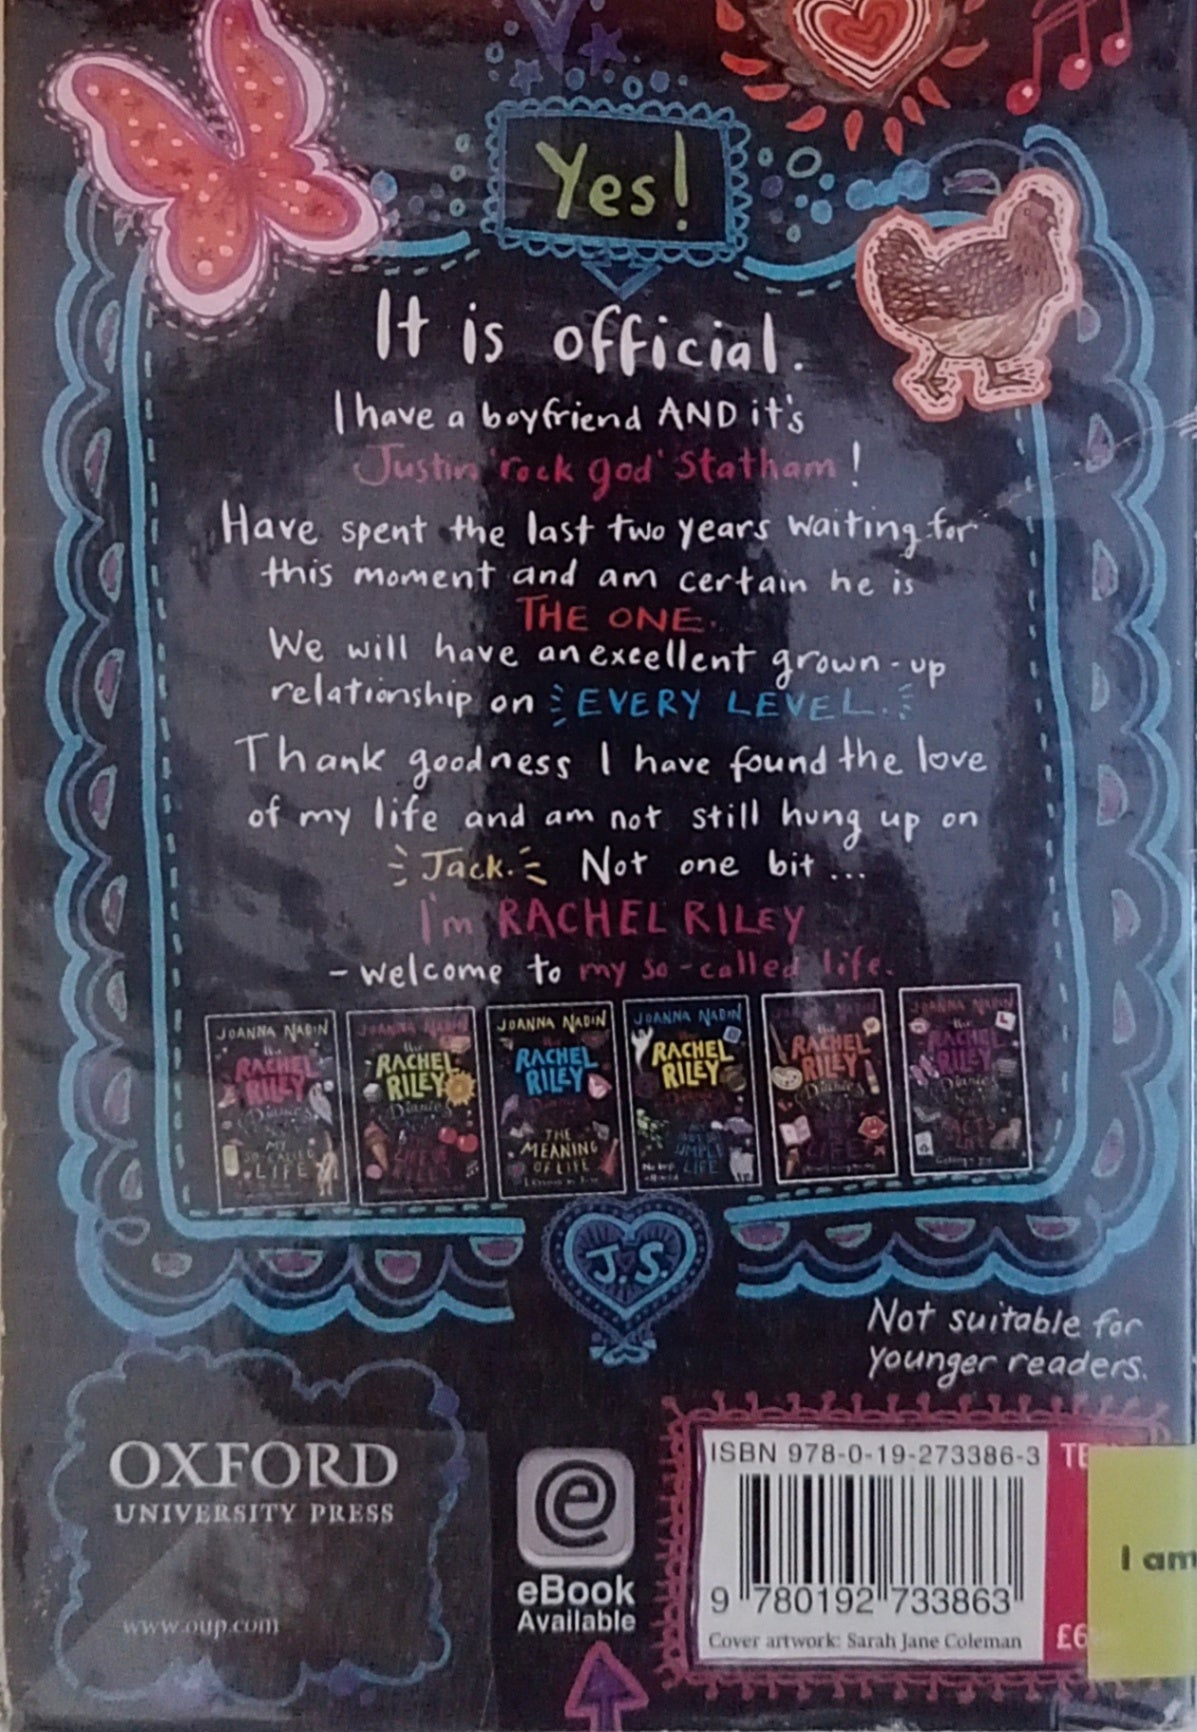 Yes!
It is official.
I have a boyfriend AND it's
Justin 'rock god' Statham!
Have spent the last two years waiting for
this moment and am certain he is
THE ONE.
We will have an excellent grown-up
relationship on EVERY LEVEL.
Thank goodness I have found the love
of my life and am not still hung up on
Jack. Not one bit...
I'm RACHEL RILEY
- welcome to my so-called life.
JOANNA NADIN
the
RACHEL
RILEY
Diaries
MY
SO-CALLED
LIFE
JOANNA NADIN
the
RACHEL
RILEY
Diaries
LIFE OF
RILEY
JOANNA NADIN
RACHEL
RILEY
THE
MEANING
OF LIFE
JOANNA NADIN
RACHEL
RILEY
SIMPLE
LIFE
JOANNA NADIN
the
RACHEL
RILEY
Diaries
LIFE
JOANNA NADIN
the
RACHEL
RILEY
Diaries
FACTS
LIFE
J.S.
Not suitable for
younger readers.
OXFORD
UNIVERSITY PRESS
www.oup.com
eBook
Available
ISBN 978-0-19-273386-3
9 780192 733863
Cover artwork: Sarah Jane Coleman
£6
I am